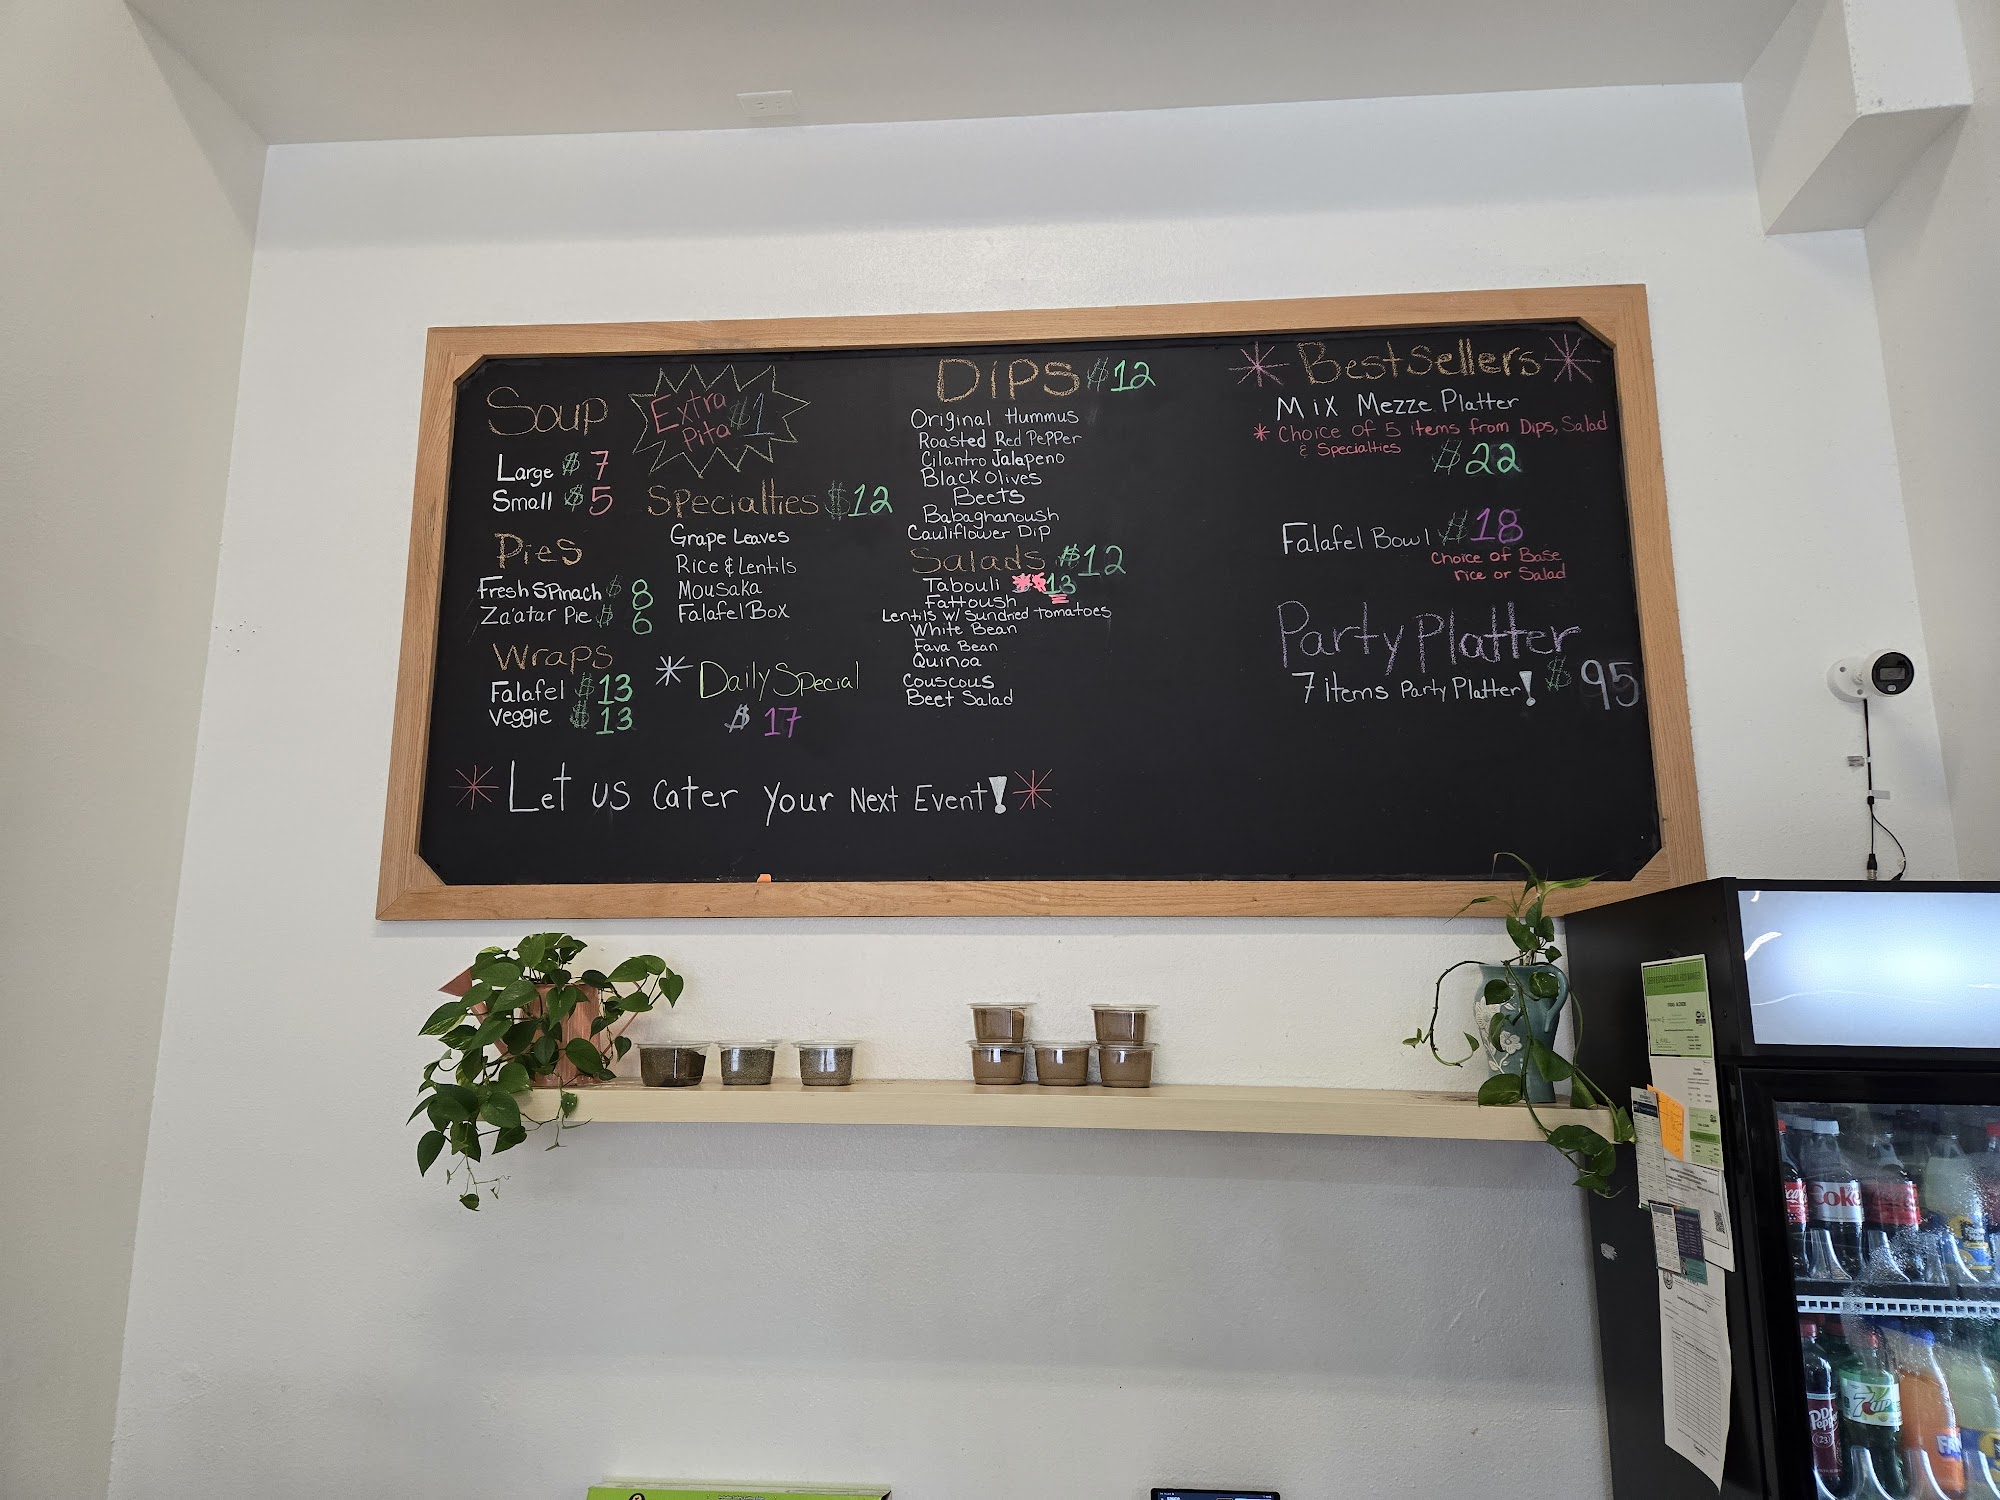 Soup
Large $ 7
Small $ 5
Pies
Fresh Spinach $ 8
Za'atar Pie $ 6
Wraps
Falafel $ 13
Veggie $ 13
Extra $1
Pita
Specialties $12
Grape Leaves
Rice & Lentils
Mousaka
Falafel Box
* Daily Special
$ 17
Dips $12
Original Hummus
Roasted Red Pepper
Cilantro Jalapeno
Black Olives
Beets
Babaghanoush
Cauliflower Dip
Salads $12
Tabouli 13
Fattoush
Lentils w/ Sundried Tomatoes
White Bean
Fava Bean
Quinoa
Couscous
Beet Salad
* Best Sellers *
Mix Mezze Platter
* Choice of 5 items from Dips, Salad
& Specialties
$22
Falafel Bowl $18
Choice of Base
rice or Salad
Party Platter
7 items Party Platter! $ 95
* Let us cater your Next Event! *
Coke
Dr Pepper
23
7UP